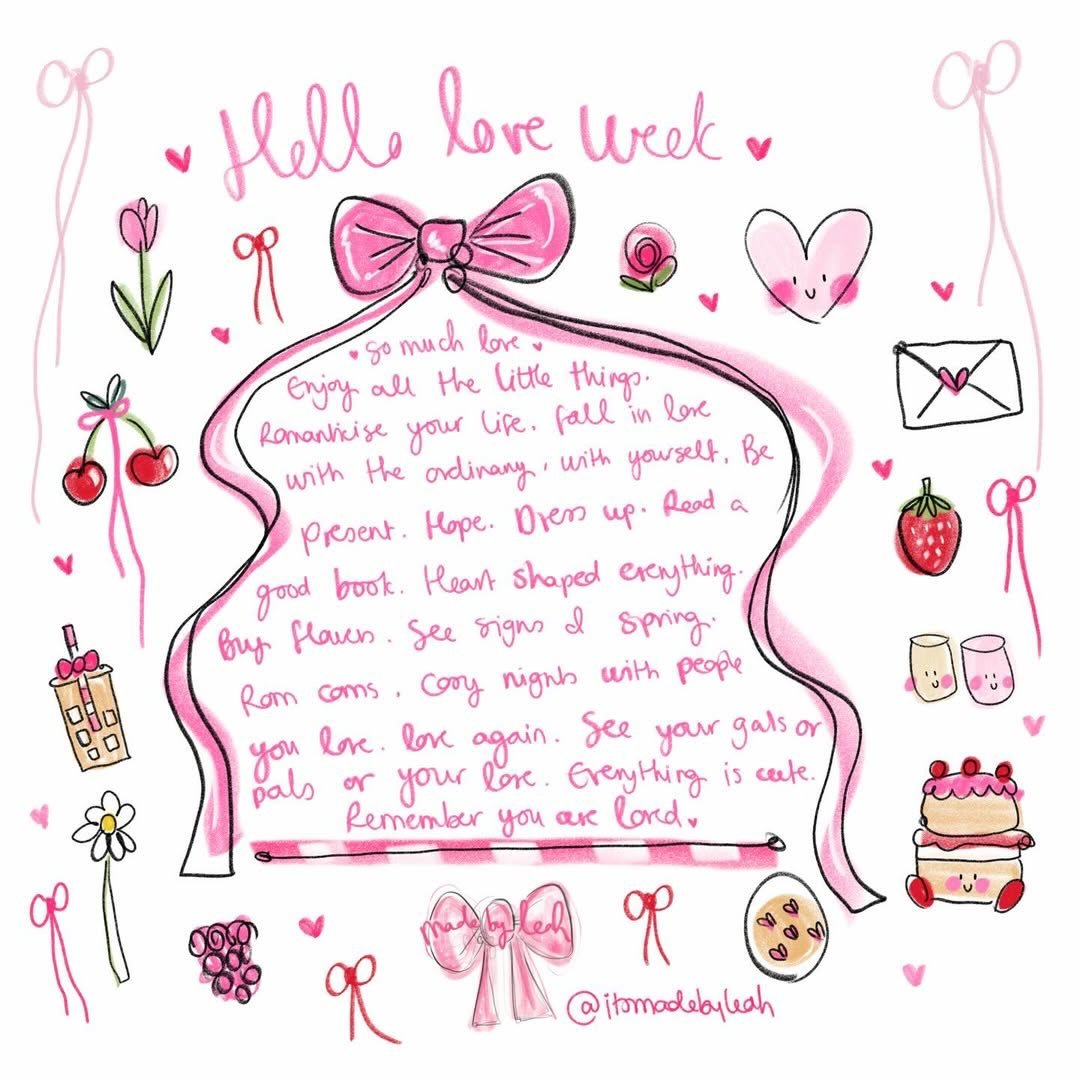 Hello love week
so much love
Enjoy all the little things.
Romanticise your life. fall in love
with the ordinary, with yourself. Be
present. Hope. Dress up. Read a
good book. Heart shaped everything.
Buy flowers. See signs of spring.
Rom coms. Cosy nights with people
you love. love again. See your gals or
pals or your love. Everything is cute.
Remember you are loved.
made by leah
@itsmadebyleah